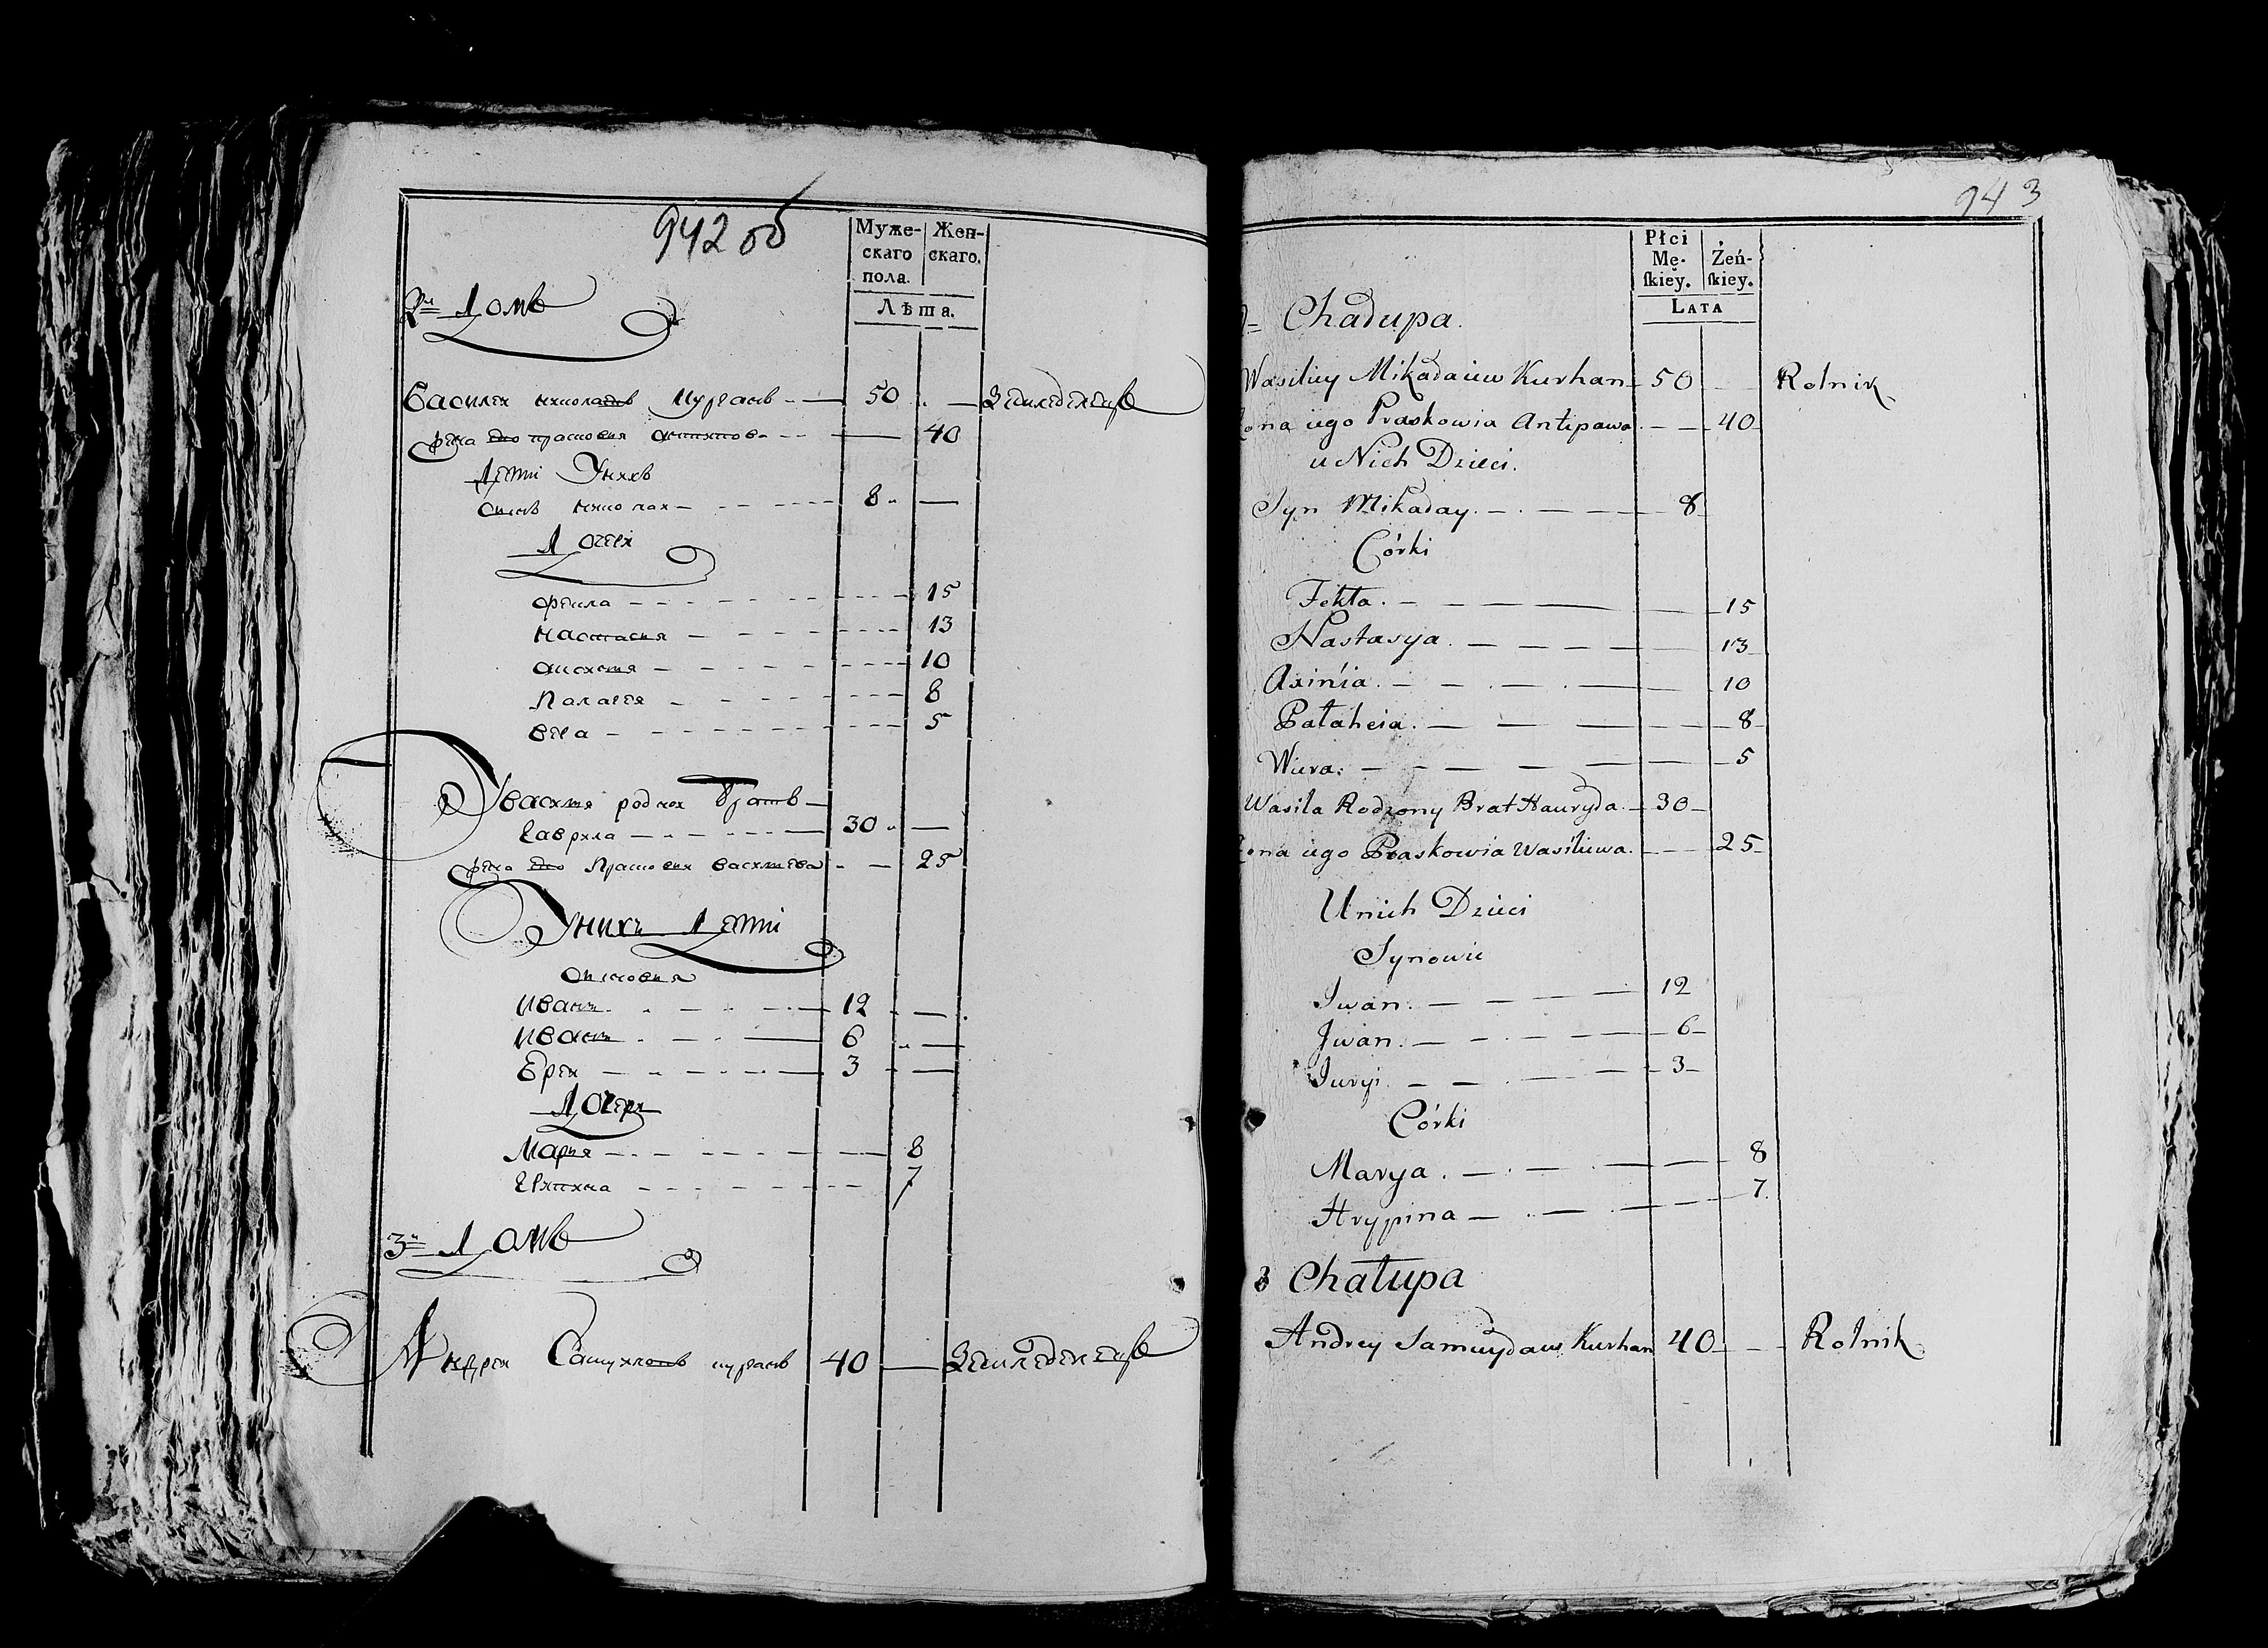 942 об
Муже-
скаго
пола.
Жен-
скаго.
Лѣта.
2й Домъ
Василей Николаевъ Курганъ 50 Земледелецъ
Жена его Прасковия Антипова 40
Дети У нихъ
Сынъ Николай 8
Дочери
Фекла 15
Настасия 13
Аксиния 10
Палагея 8
Вера 5
У Василия родной Братъ
Гаврила 30
Жена его Прасковия Васильева 25
У нихъ Дети
Сыновия
Иванъ 12
Иванъ 6
Ерей 3
Дочери
Мария 8
Грипина 7
3й Домъ
Андрей Самуйловъ Курганъ 40 Земледелецъ
943
Płci
Mę-
ſkiey.
Żeń-
ſkiey.
LATA
Chałupa.
Wasiliey Mikałaiew Kurhan 50 Rolnik
Żona iego Praskowia Antipawa 40
u Nich Dzieci.
Syn Mikałay. 8
Córki
Fekła. 15
Nastasya. 13
Axińia. 10
Pałaheia. 8
Wiera. 5
Wasila Rodzony Brat Hauryła. 30
Żona iego Praskowia Wasiliewa. 25
U nich Dzieci
Synowie
Iwan. 12
Iwan. 6
Jury. 3
Córki
Marya. 8
Hrypina 7
3 Chałupa
Andrey Samuyław Kurhan 40 Rolnik